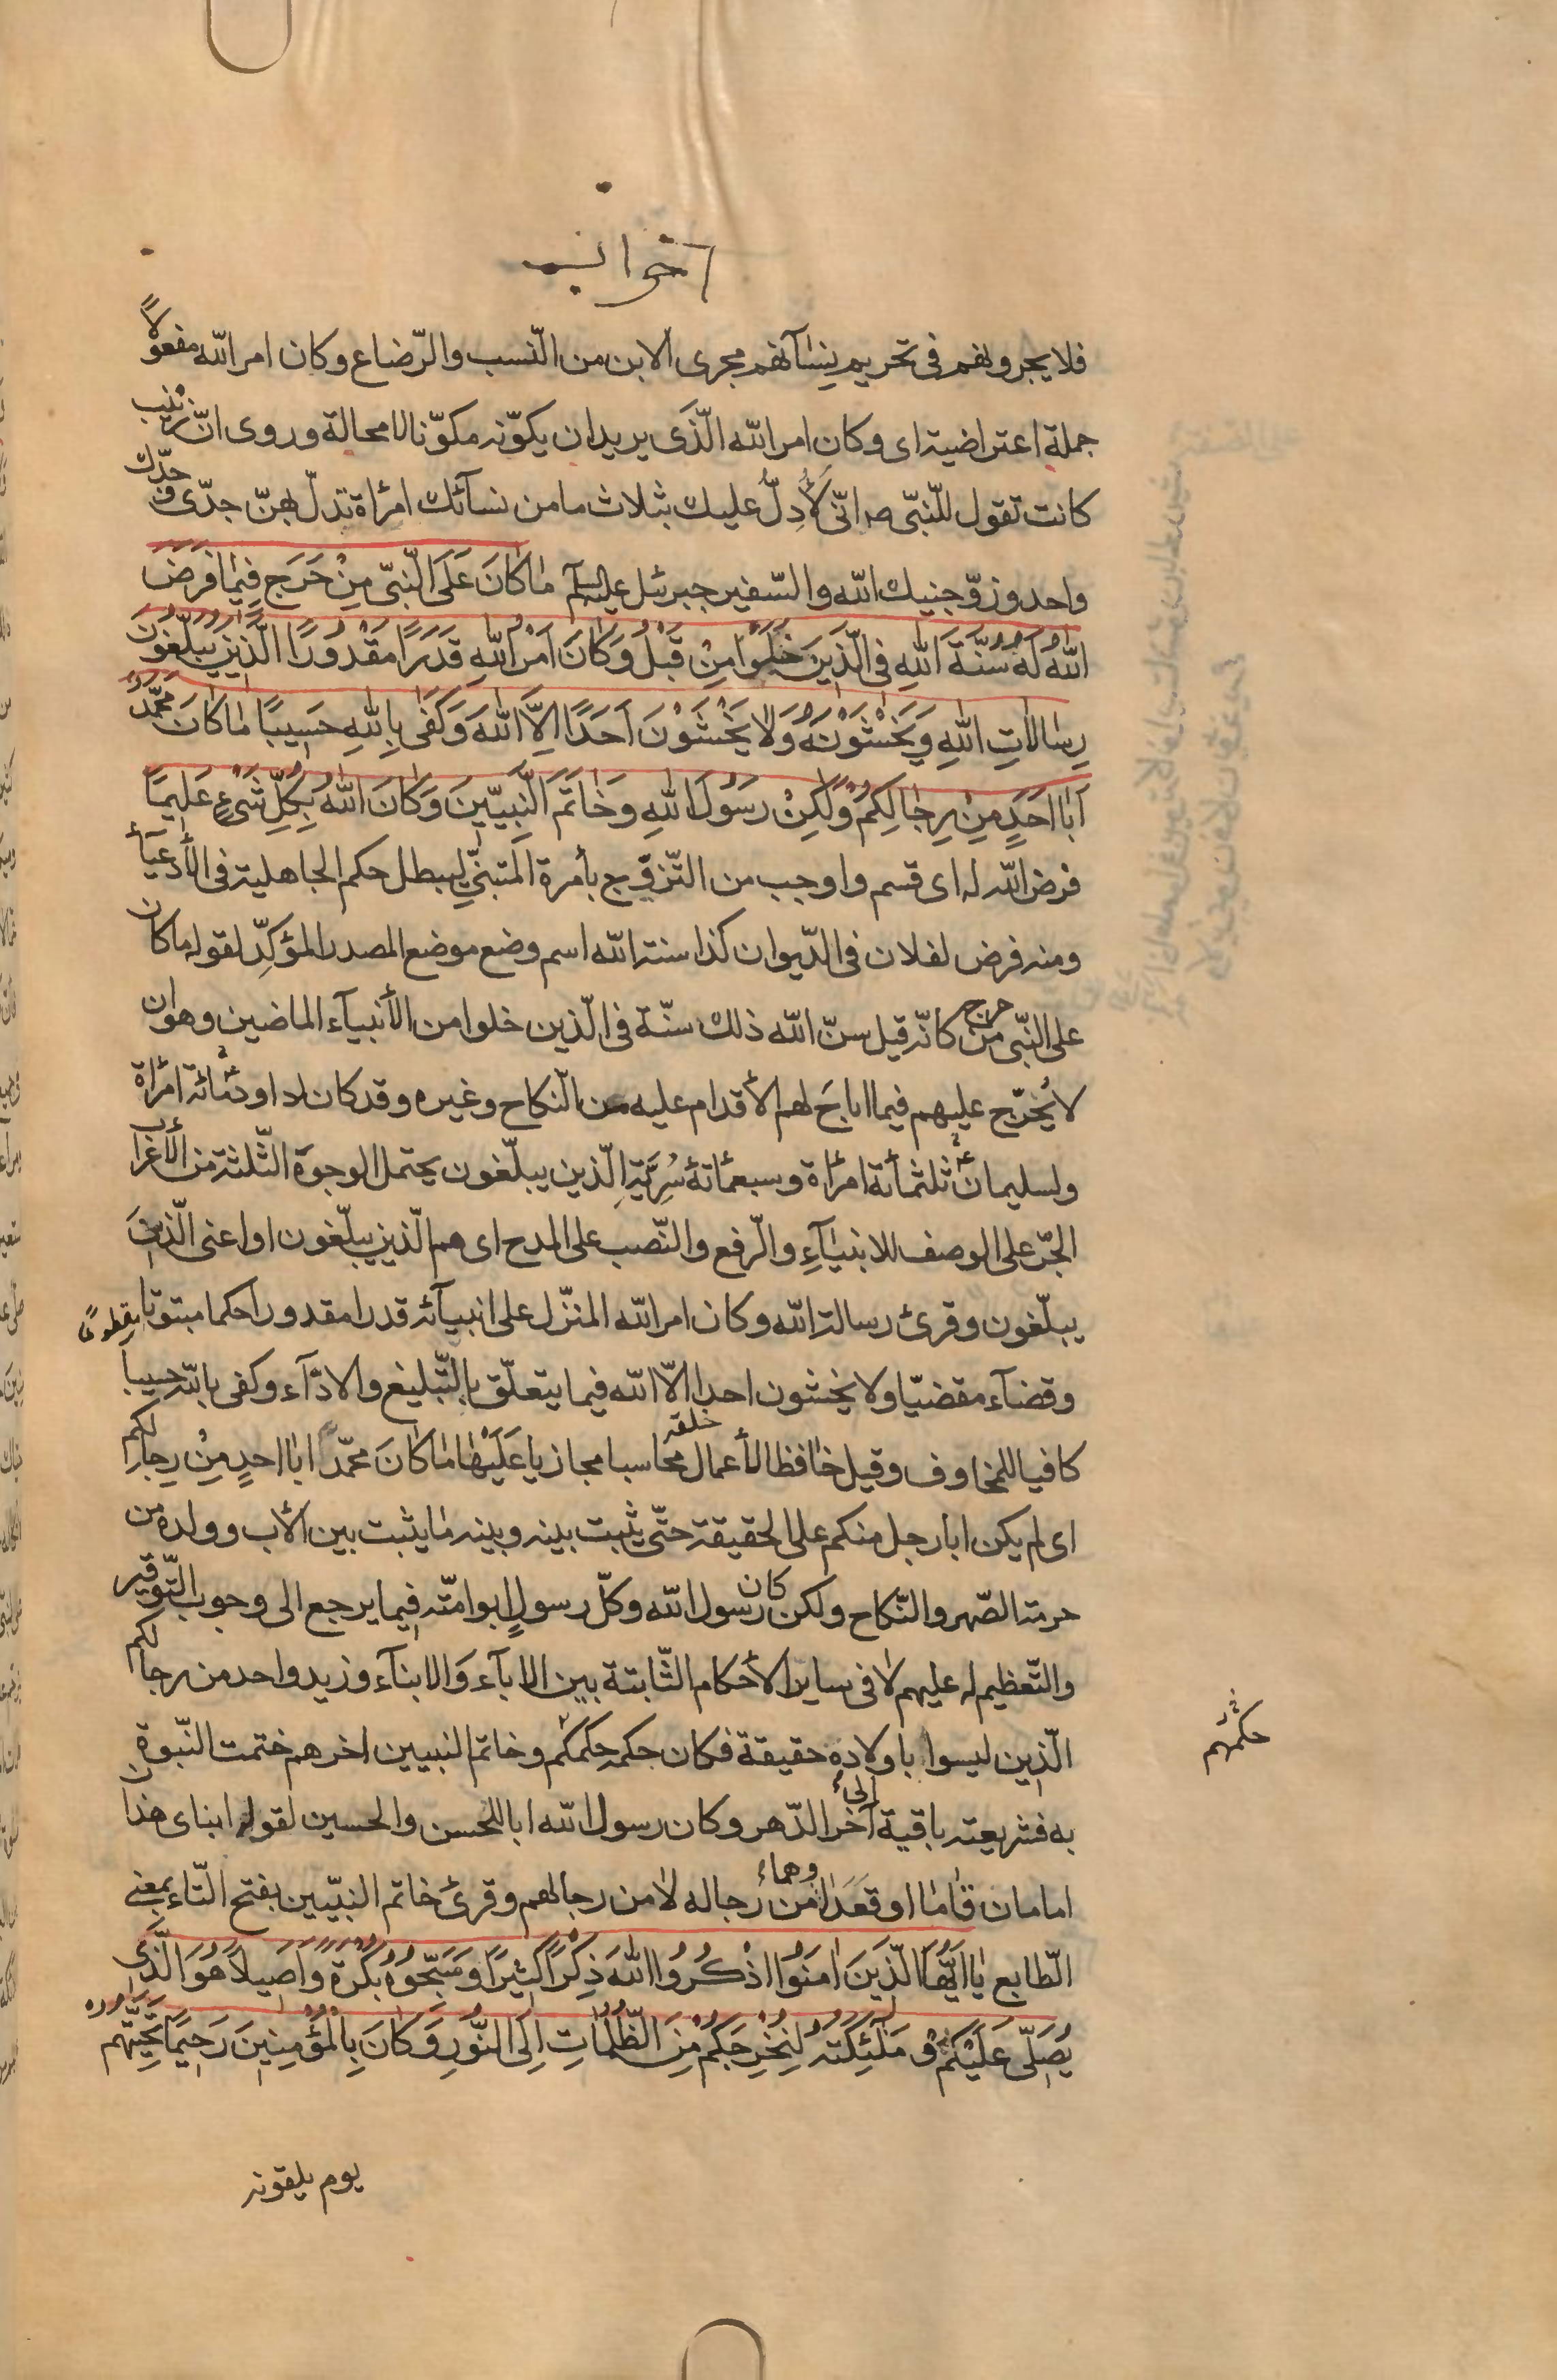 فلا يجرونهم فى تحريم نِسٰآئهم مجرى الابن من النّسب والرّضاع وكان امر اللّه مفعولاً
جملة اعتراضية اى وكان امر اللّه الّذى يريد ان يكوّنه مكوّنا لا محالة وروى انّ زينب
كانت تقول للنّبى ص انّى لَأُدِلُّ عليك بثلاث ما من نسآئك امرٔاة تدلّ بهنّ جدّى وجدّك
واحد وزوّجنيك اللّه والسّفير جبرئل عليه السلم مٰا كٰانَ عَلَى النَّبىّ مِنْ حَرَجٍ فِيمٰا فَرَضَ
اللّٰهُ لَهُ سُنَّةَ اللّٰهِ فى الَّذينَ خَلَوْا مِنْ قَبْلُ وَكٰانَ اَمْرُ اللّٰهِ قَدَرًا مَقْدُورًا الَّذينَ يُبَلِّغُونَ
رِسٰالٰاتِ اللّٰهِ وَيَخْشَوْنَهُ وَلٰا يَخْشَوْنَ اَحَدًا اِلَّا اللّٰهَ وَكَفٰى بِاللّٰهِ حَسِيبًا مٰا كٰانَ مُحَمَّدٌ
اَبٰا اَحَدٍ مِنْ رِجٰالِكُمْ وَلٰكِنْ رَسُولَ اللّٰهِ وَخٰاتَمَ النَّبِيّينَ وَكٰانَ اللّٰهُ بِكُلِّ شَىْءٍ عَلِيمًا
فرض اللّه له اى قسم واوجب من التّزوّج بأمرة المتبنّىِ ليبطل حكم الجاهلية فى الأدعيآء
ومنه فرض لفلان فى الدّيوان كذا سنة اللّه اسم وضع موضع المصدر المؤكِّد لقوله ما كان
على النّبى من حرج كانّه قيل سنّ اللّه ذلك سنّة فى الّذين خلوا من الأنبيآء الماضين وهو ان
لا يُحَرّج عليهم فيما اباحَ لهم الأقدام عليه من النكاح وغيره وقد كان لداودع مائة امرٔاة
ولسليمانع ثلثمأئة امرٔاة وسبعمٔائة سُرِّيَّة الّذين يبلّغون يحتمل الوجوه الثّلثة من الأعراب
الجرّ على الوصف للانبيٰآءِ والرّفع والنّصب على المدح اى هم الّذين يبلّغون او اعنى الّذين
يبلّغون وقرئ رسالة اللّه وكان امر اللّه المنزّل على انبيآئه قدرا مقدورا حكما مبتوتا مقطوعًا
وقضآء مقضيّا ولا يخشون احدا الّا اللّه فيما يتعلّق بالتّبليغ والادآء وكفى باللّه حسيبا
كافيا للمخاوف وقيل حٰافظا لأعمال خلقه محاسبا مجازيا عَلَيْهٰا مٰا كٰانَ محمّدٌ ابٰا احدٍ مِنْ رِجٰالكم
اى لم يكن ابا رجل منكم على الحقيقة حتّى يثبت بينه وبينه مٰا يثبت بين الأب وولده من
حرمة الصّهر والنّكاح ولكن كان رسول اللّه وكلّ رسولٍ ابو امّته فيما يرجع الى وجوب التّوقير
والتّعظيم له عليهم لا فى ساير الأحكام الثّابتة بين الابآء وَالابنآء وزيد واحد من رجالكم
الّذين ليسوا باولاده حقيقة فكان حكمه حكمكم وخاتم النبيين اخرهم ختمت النّبوة
حكمهم
به فشريعته باقية الى آخر الدّهر وكان رسول اللّه ابا للحسن والحسين لقوله ابناى هذان
امامان قٰامٰا او قَعَدٰا وهما من رجاله لا من رجالهم وقرئ خاتم النبيّين بفتح التّاء بمعنى
الطّابع يٰا اَيُّهَا الَّذينَ اٰمَنُوا اذْكُرُوا اللّٰهَ ذِكْرًا كَثيرًا وَسَبِّحُوهُ بُكْرَةً وَاَصيلاً هُوَ الَّذى
يُصَلّى عَلَيْكُمْ وَمَلٰٓئِكَتُهُ لِيُخْرِجَكُمْ مِنَ الظُّلُمٰاتِ اِلَى النُّورِ وَكٰانَ بِالْمُؤْمِنِينَ رَحِيمًا تَحِيَّتُهُمْ
يوم يلقونه